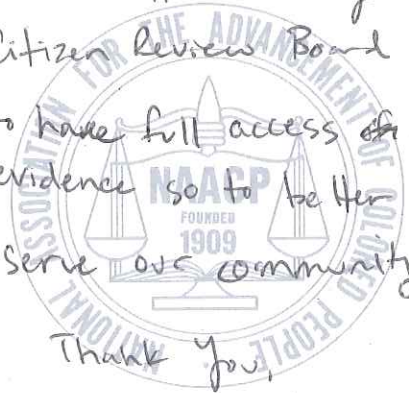 Citizen Review Board
to have full access of
evidence so to better
serve our community
Thank You,
NATIONAL ASSOCIATION FOR THE ADVANCEMENT OF COLORED PEOPLE
NAACP
FOUNDED
1909